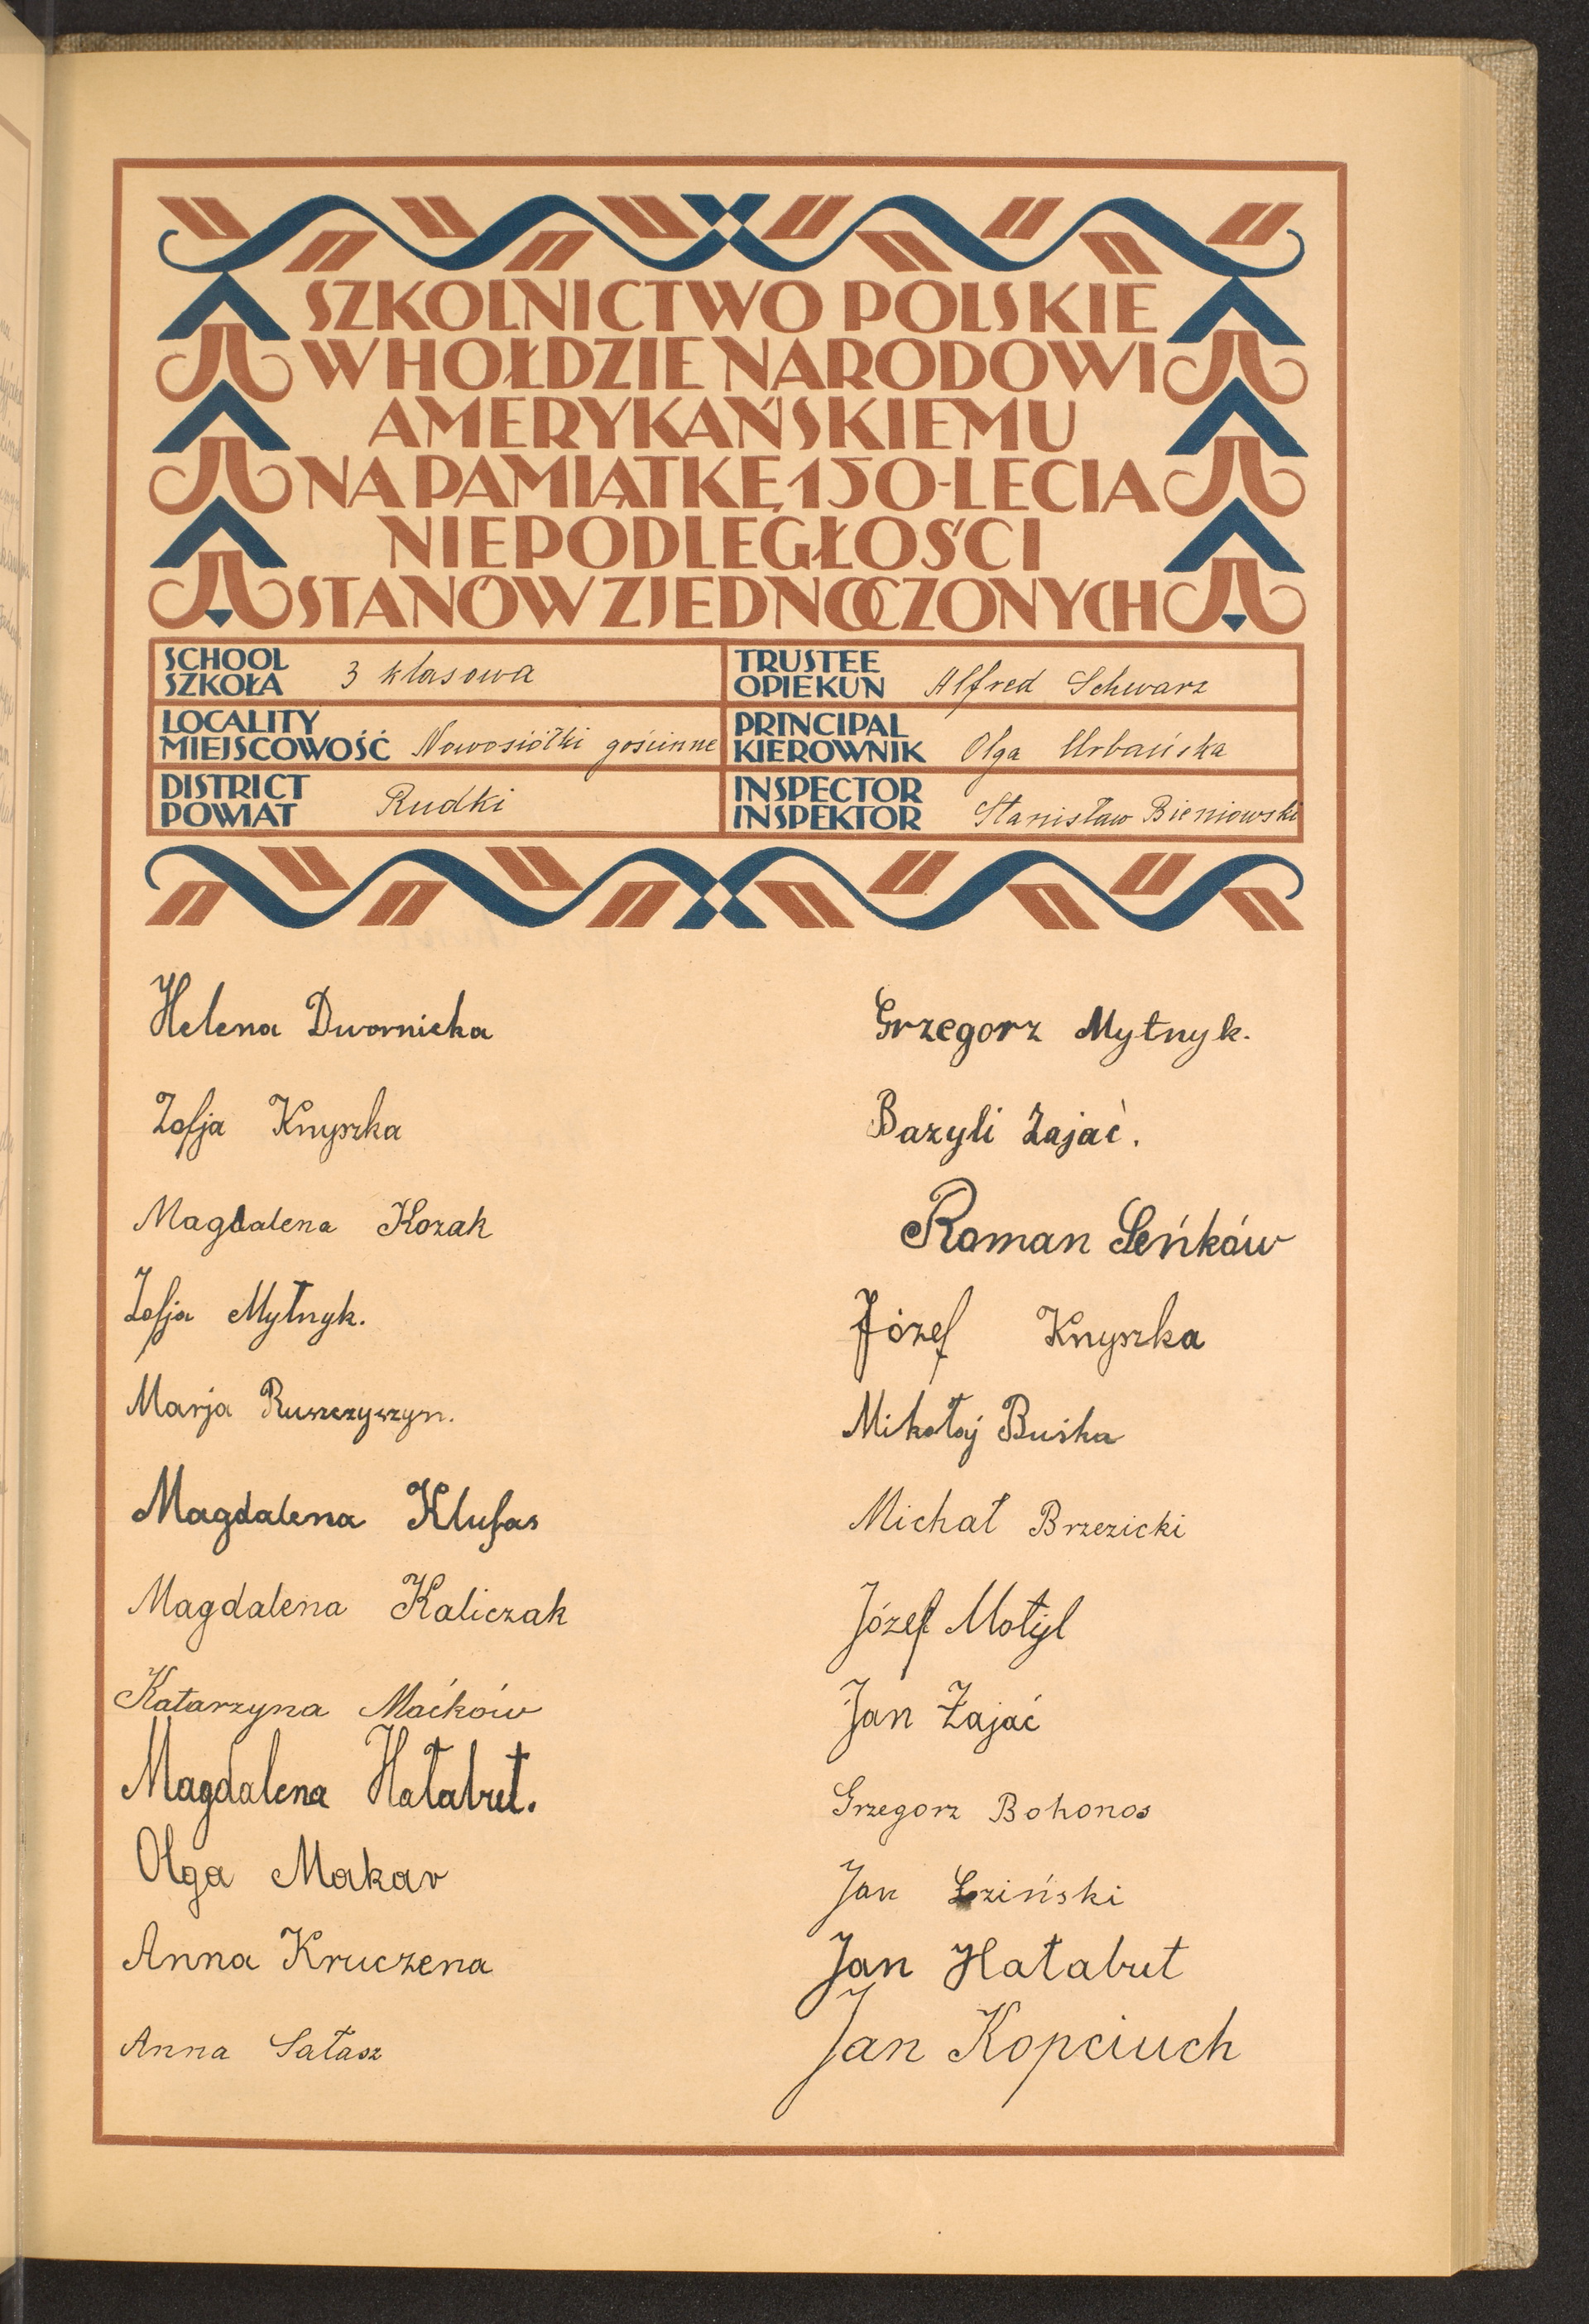 SZKOLNICTWO POLSKIE
W HOŁDZIE NARODOWI
AMERYKAŃSKIEMU
NA PAMIĄTKĘ 150-LECIA
NIEPODLEGŁOŚCI
STANÓW ZJEDNOCZONYCH
SCHOOL
SZKOŁA 3 klasowa
TRUSTEE
OPIEKUN Alfred Schwarz
LOCALITY
MIEJSCOWOŚĆ Nowosiółki gościnne
PRINCIPAL
KIEROWNIK Olga Urbańska
DISTRICT
POWIAT Rudki
INSPECTOR
INSPEKTOR Stanisław Bieniowski
Helena Dwornicka
Zofja Knyszka
Magdalena Kozak
Zofja Mytnyk.
Marja Ruszczyszyn.
Magdalena Klufas
Magdalena Kaliczak
Katarzyna Maćków
Magdalena Hałabut.
Olga Makar
Anna Kruczena
Anna Sałasz
Grzegorz Mytnyk.
Bazyli Zajać.
Roman Seńków
Józef Knyszka
Mikołaj Buśka
Michał Brzezicki
Józef Motyl
Jan Zajać
Grzegorz Bohonos
Jan
Jan Hałabut
Jan Kopciuch